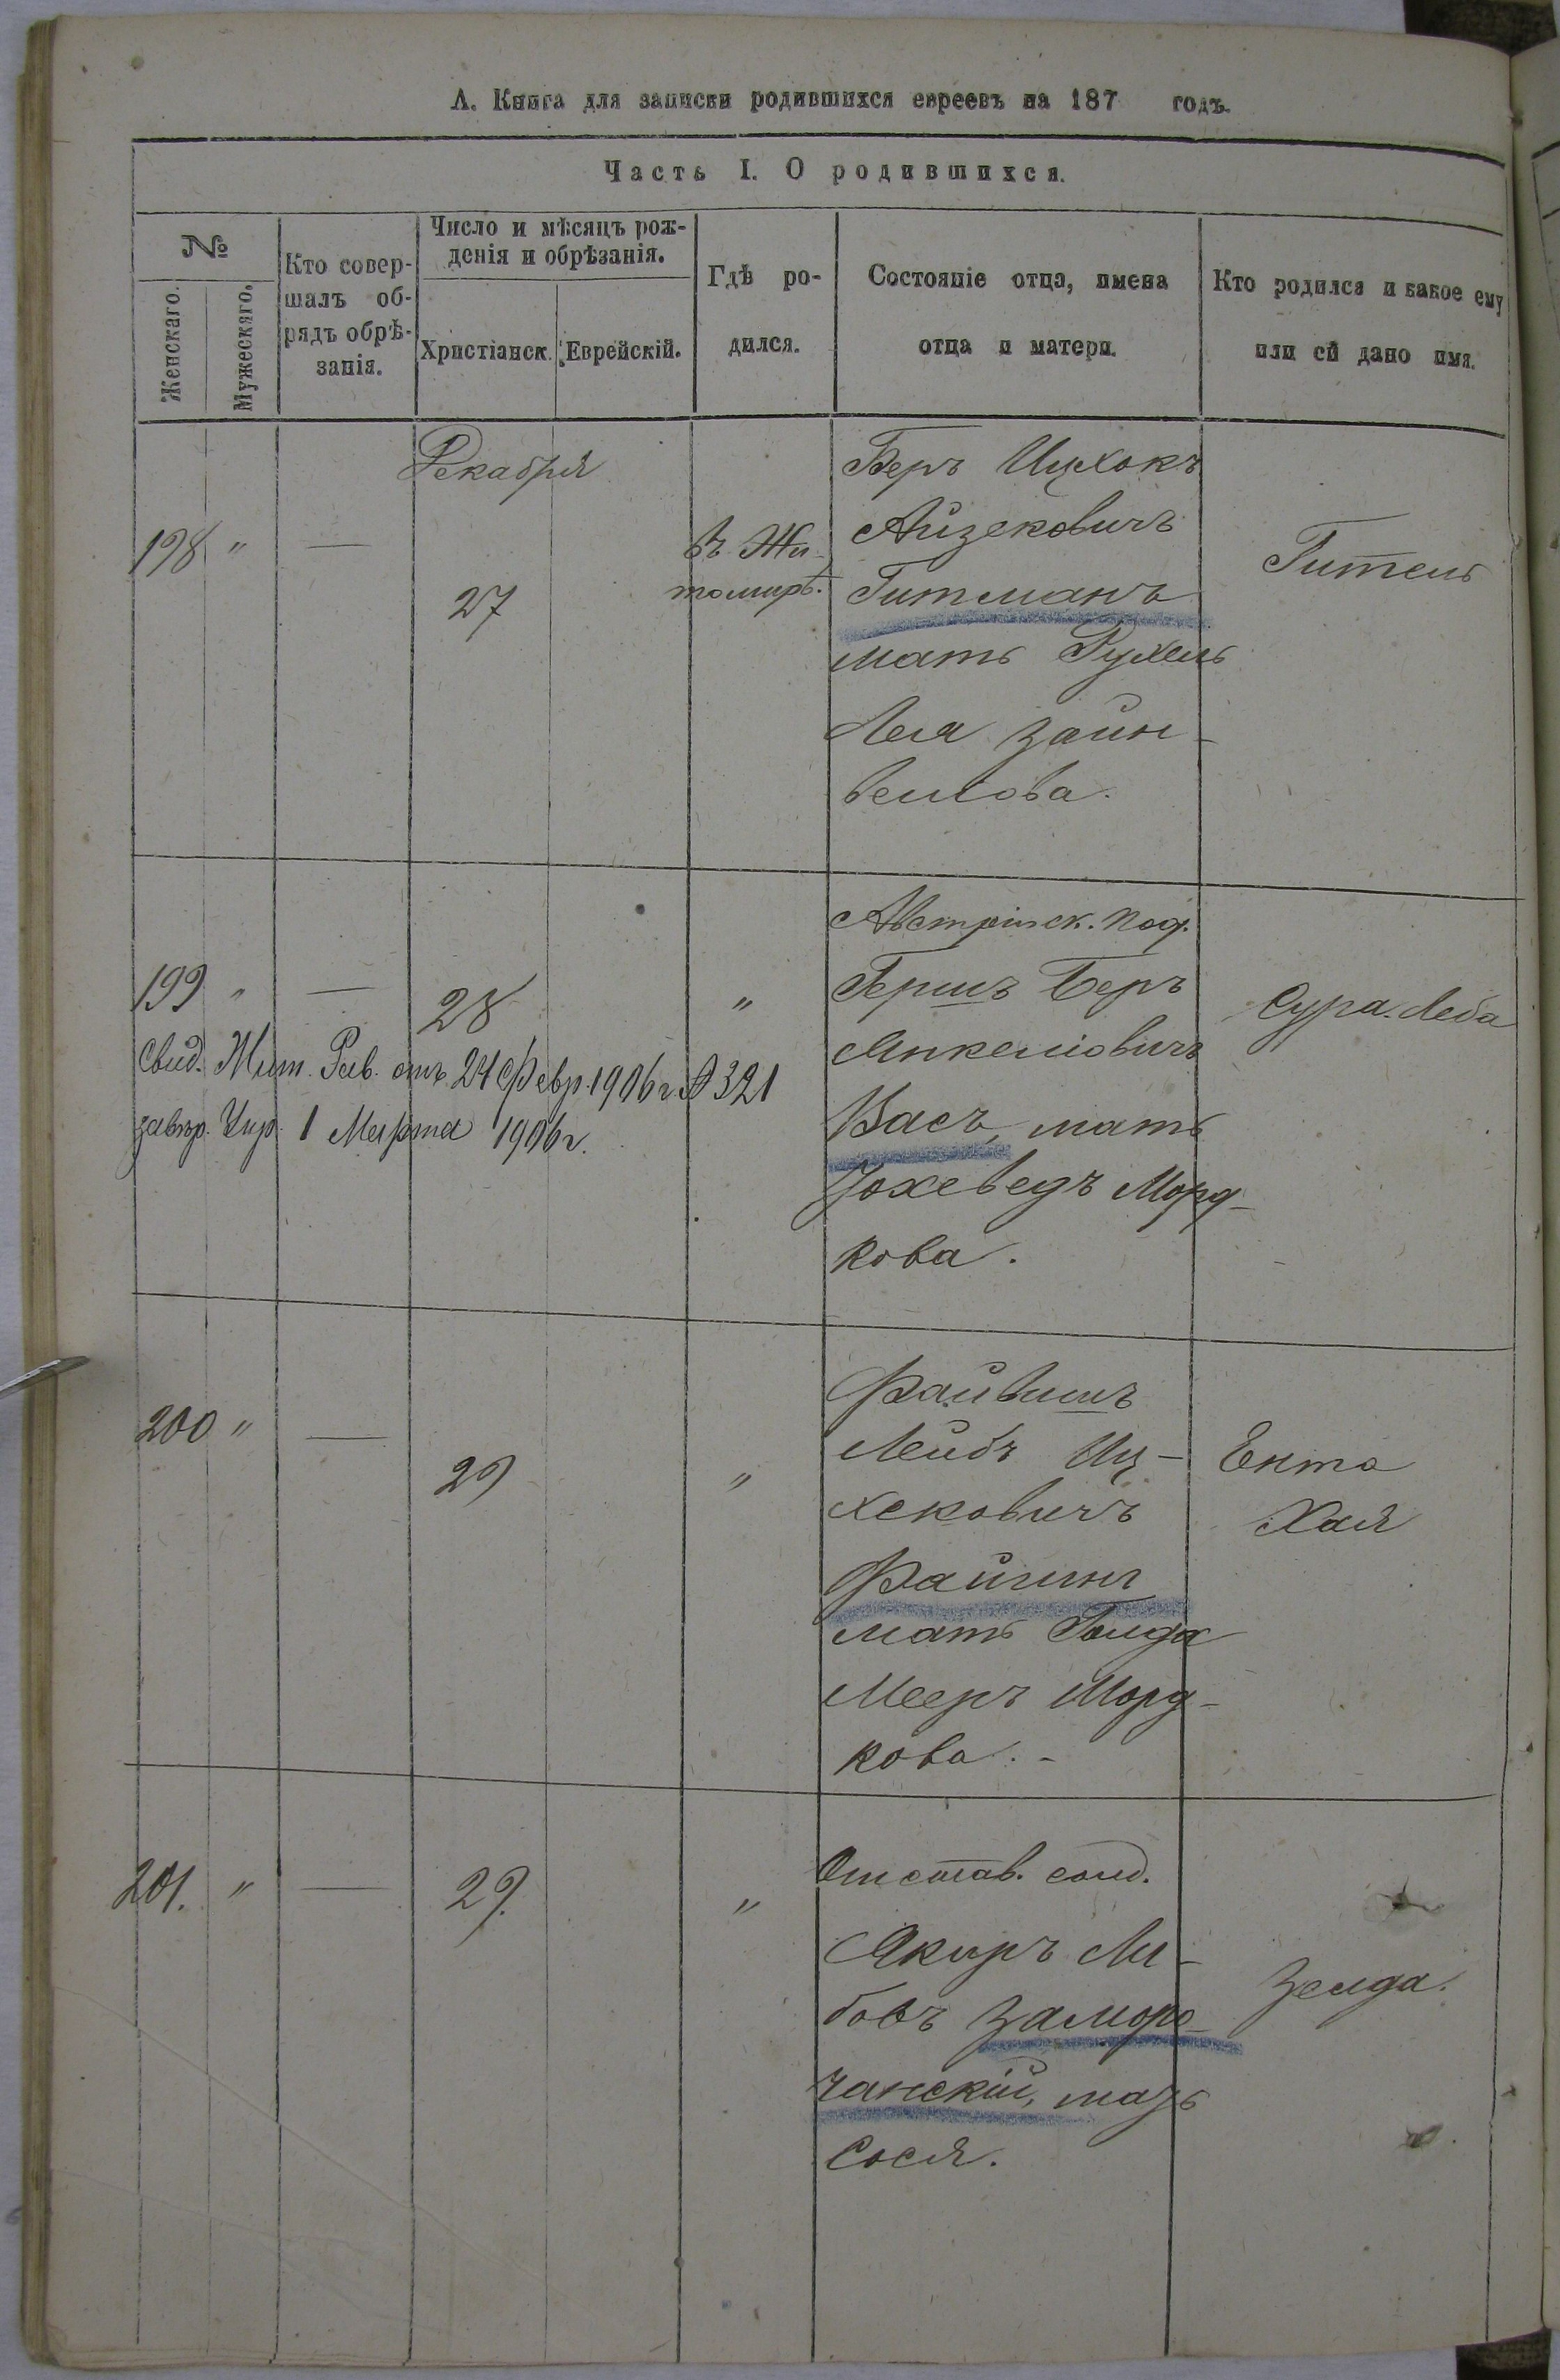 А. Книга для записки родившихся евреевъ на 187 годъ.
Часть I. О родившихся.
№
Женскаго.
Мужескаго.
Кто совер-
шалъ об-
рядъ обрѣ-
занія.
Число и мѣсяцъ рож-
денія и обрѣзанія.
Христіанск.
Еврейскій.
Гдѣ ро-
дился.
Состояніе отца, имена
отца и матери.
Кто родился и какое ему
или ей дано имя.
Декабря
198 " —
27
въ Жи-
томирѣ.
Беръ Ицхокъ
Айзековичъ
Гитманъ
мать Рухель
Лея Зайн-
велова.
Гитель
199 " —
28
"
Свид. Жит. Рав. отъ 24 Февр. 1906 г. № 321
завѣр. Упр. 1 Марта 1906 г.
Австрійск. под.
Гершъ Беръ
Янкеліовичъ
Васъ, мать
Іохеведъ Морд-
кова.
Сура Леба
200 " —
29
"
Файвишъ
Лейбъ Иц-
хековичъ
мать Голда
Мееръ Морд-
кова. -
Ента
Хая
201. " —
29.
"
Отстав. солд.
Якиръ Ли-
бовъ Заморо-
чанскій, мать
Сося.
Зелда.